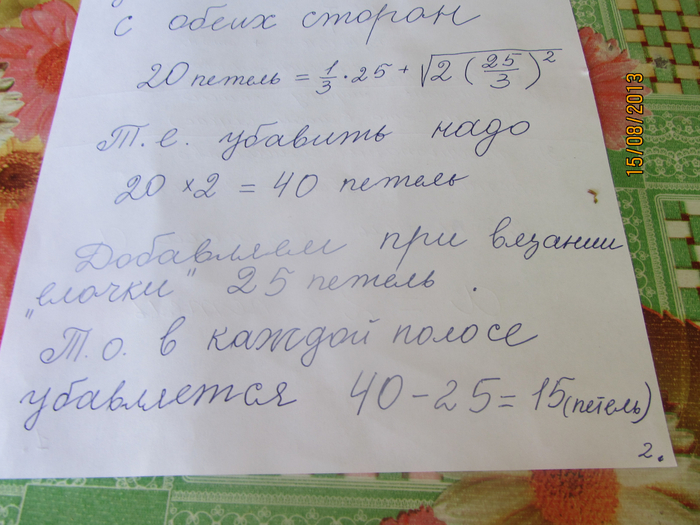 с обеих сторон
20 петель = 1/3 · 25 + √2 (25/3)²
Т.е. убавить надо
20 × 2 = 40 петель
Добавляем при вязании
"елочки" 25 петель.
Т.о. в каждой полосе
убавляется 40 - 25 = 15 (петель)
2.
15/08/2013